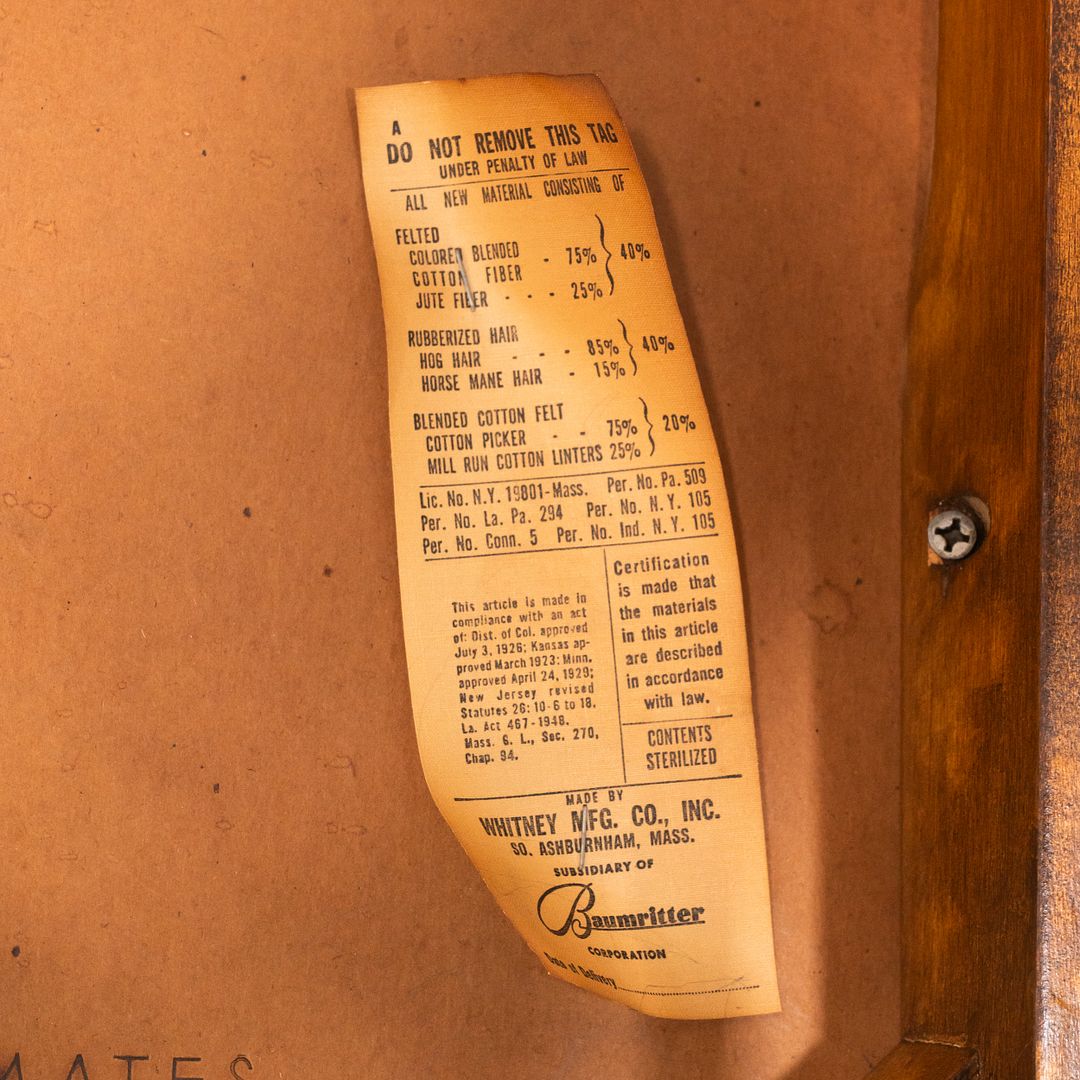 A
DO NOT REMOVE THIS TAG
UNDER PENALTY OF LAW
ALL NEW MATERIAL CONSISTING OF
FELTED
COLORED BLENDED - 75% } 40%
COTTON FIBER
JUTE FIBER - - - 25%
RUBBERIZED HAIR
HOG HAIR - - - 85% } 40%
HORSE MANE HAIR - 15%
BLENDED COTTON FELT
COTTON PICKER - - 75% } 20%
MILL RUN COTTON LINTERS 25%
Lic. No. N.Y. 19801-Mass. Per. No. Pa. 509
Per. No. La. Pa. 294 Per. No. N.Y. 105
Per. No. Conn. 5 Per. No. Ind. N.Y. 105
This article is made in
compliance with an act
of: Dist. of Col. approved
July 3, 1926; Kansas ap-
proved March 1923; Minn.
approved April 24, 1929;
New Jersey revised
Statutes 26:10-6 to 18.
La. Act 467-1948.
Mass. G. L., Sec. 270,
Chap. 94.
Certification
is made that
the materials
in this article
are described
in accordance
with law.
CONTENTS
STERILIZED
MADE BY
WHITNEY MFG. CO., INC.
SO. ASHBURNHAM, MASS.
SUBSIDIARY OF
Baumritter
CORPORATION
Date of Delivery
MATES